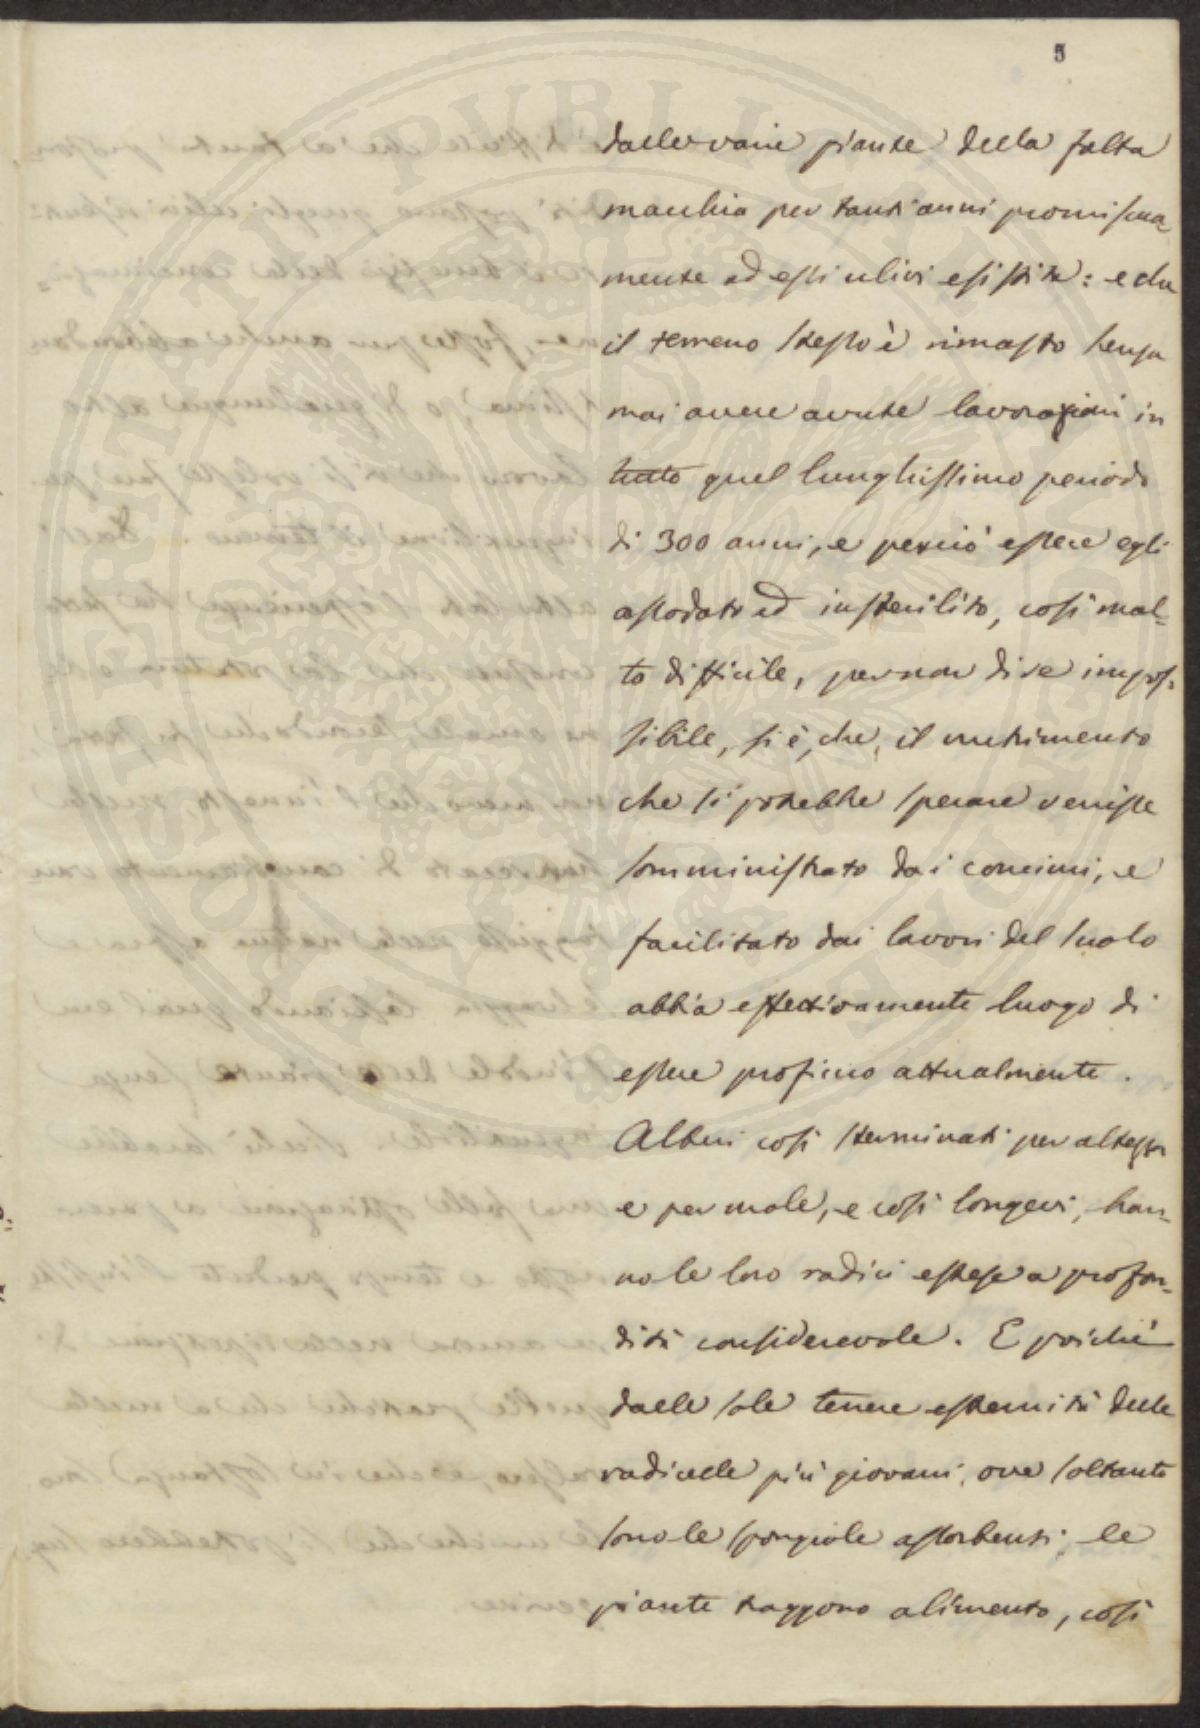 5
dalle varie piante della folta
macchia per tanti anni promiscua-
mente ad essi ulivi esistita: e che
il terreno stesso è rimasto senza
mai avere avute lavorazioni in
tutto quel lunghissimo periodo
di 300 anni, e perciò essere egli
assodato ed insterilito, così mol-
to difficile, per non dire impos-
sibile, si è, che, il nutrimento
che si potrebbe sperare venisse
somministrato dai concimi, e
facilitato dai lavori del suolo
abbia effettivamente luogo di
essere proficuo attualmente.
Alberi così sterminati per altezza
e per mole, e così longevi, han-
no le loro radici estese a profon-
dità considerevole. E poichè
dalle sole tenere estremità delle
radicelle più giovani, ove soltanto
sono le spongiole assorbenti, le
piante traggono alimento, così